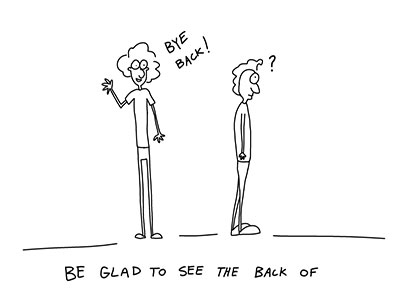 BYE
BACK!
?
BE GLAD TO SEE THE BACK OF